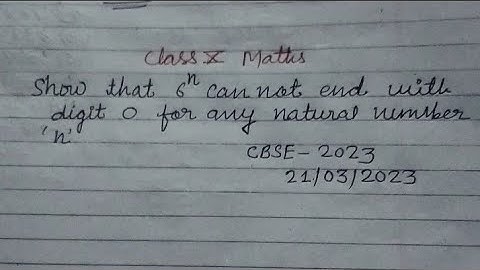 Class X Maths
Show that 6ⁿ can not end with
digit 0 for any natural number
'n'
CBSE - 2023
21/03/2023